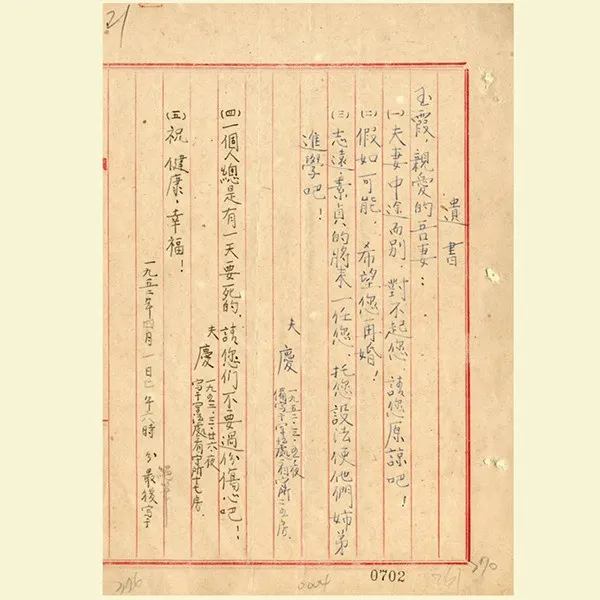 21
遺書
玉霞,親愛的吾妻:
㈠夫妻中途而別,對不起您,請您原諒吧!
㈡假如可能,希望您再婚!
㈢志遠、素貞的將來一任您,托您設法使他們姉弟
進學吧!
夫 慶
一九五二、三、五、夜
㈣一個人總是有一天要死的,請您們不要過份傷心吧!
夫 慶
一九五二、三、廿六、夜
寫于軍法處看守所十七房、
㈤祝健康,幸福!
一九五二年四月一日 午 時 分最後寫于
0702